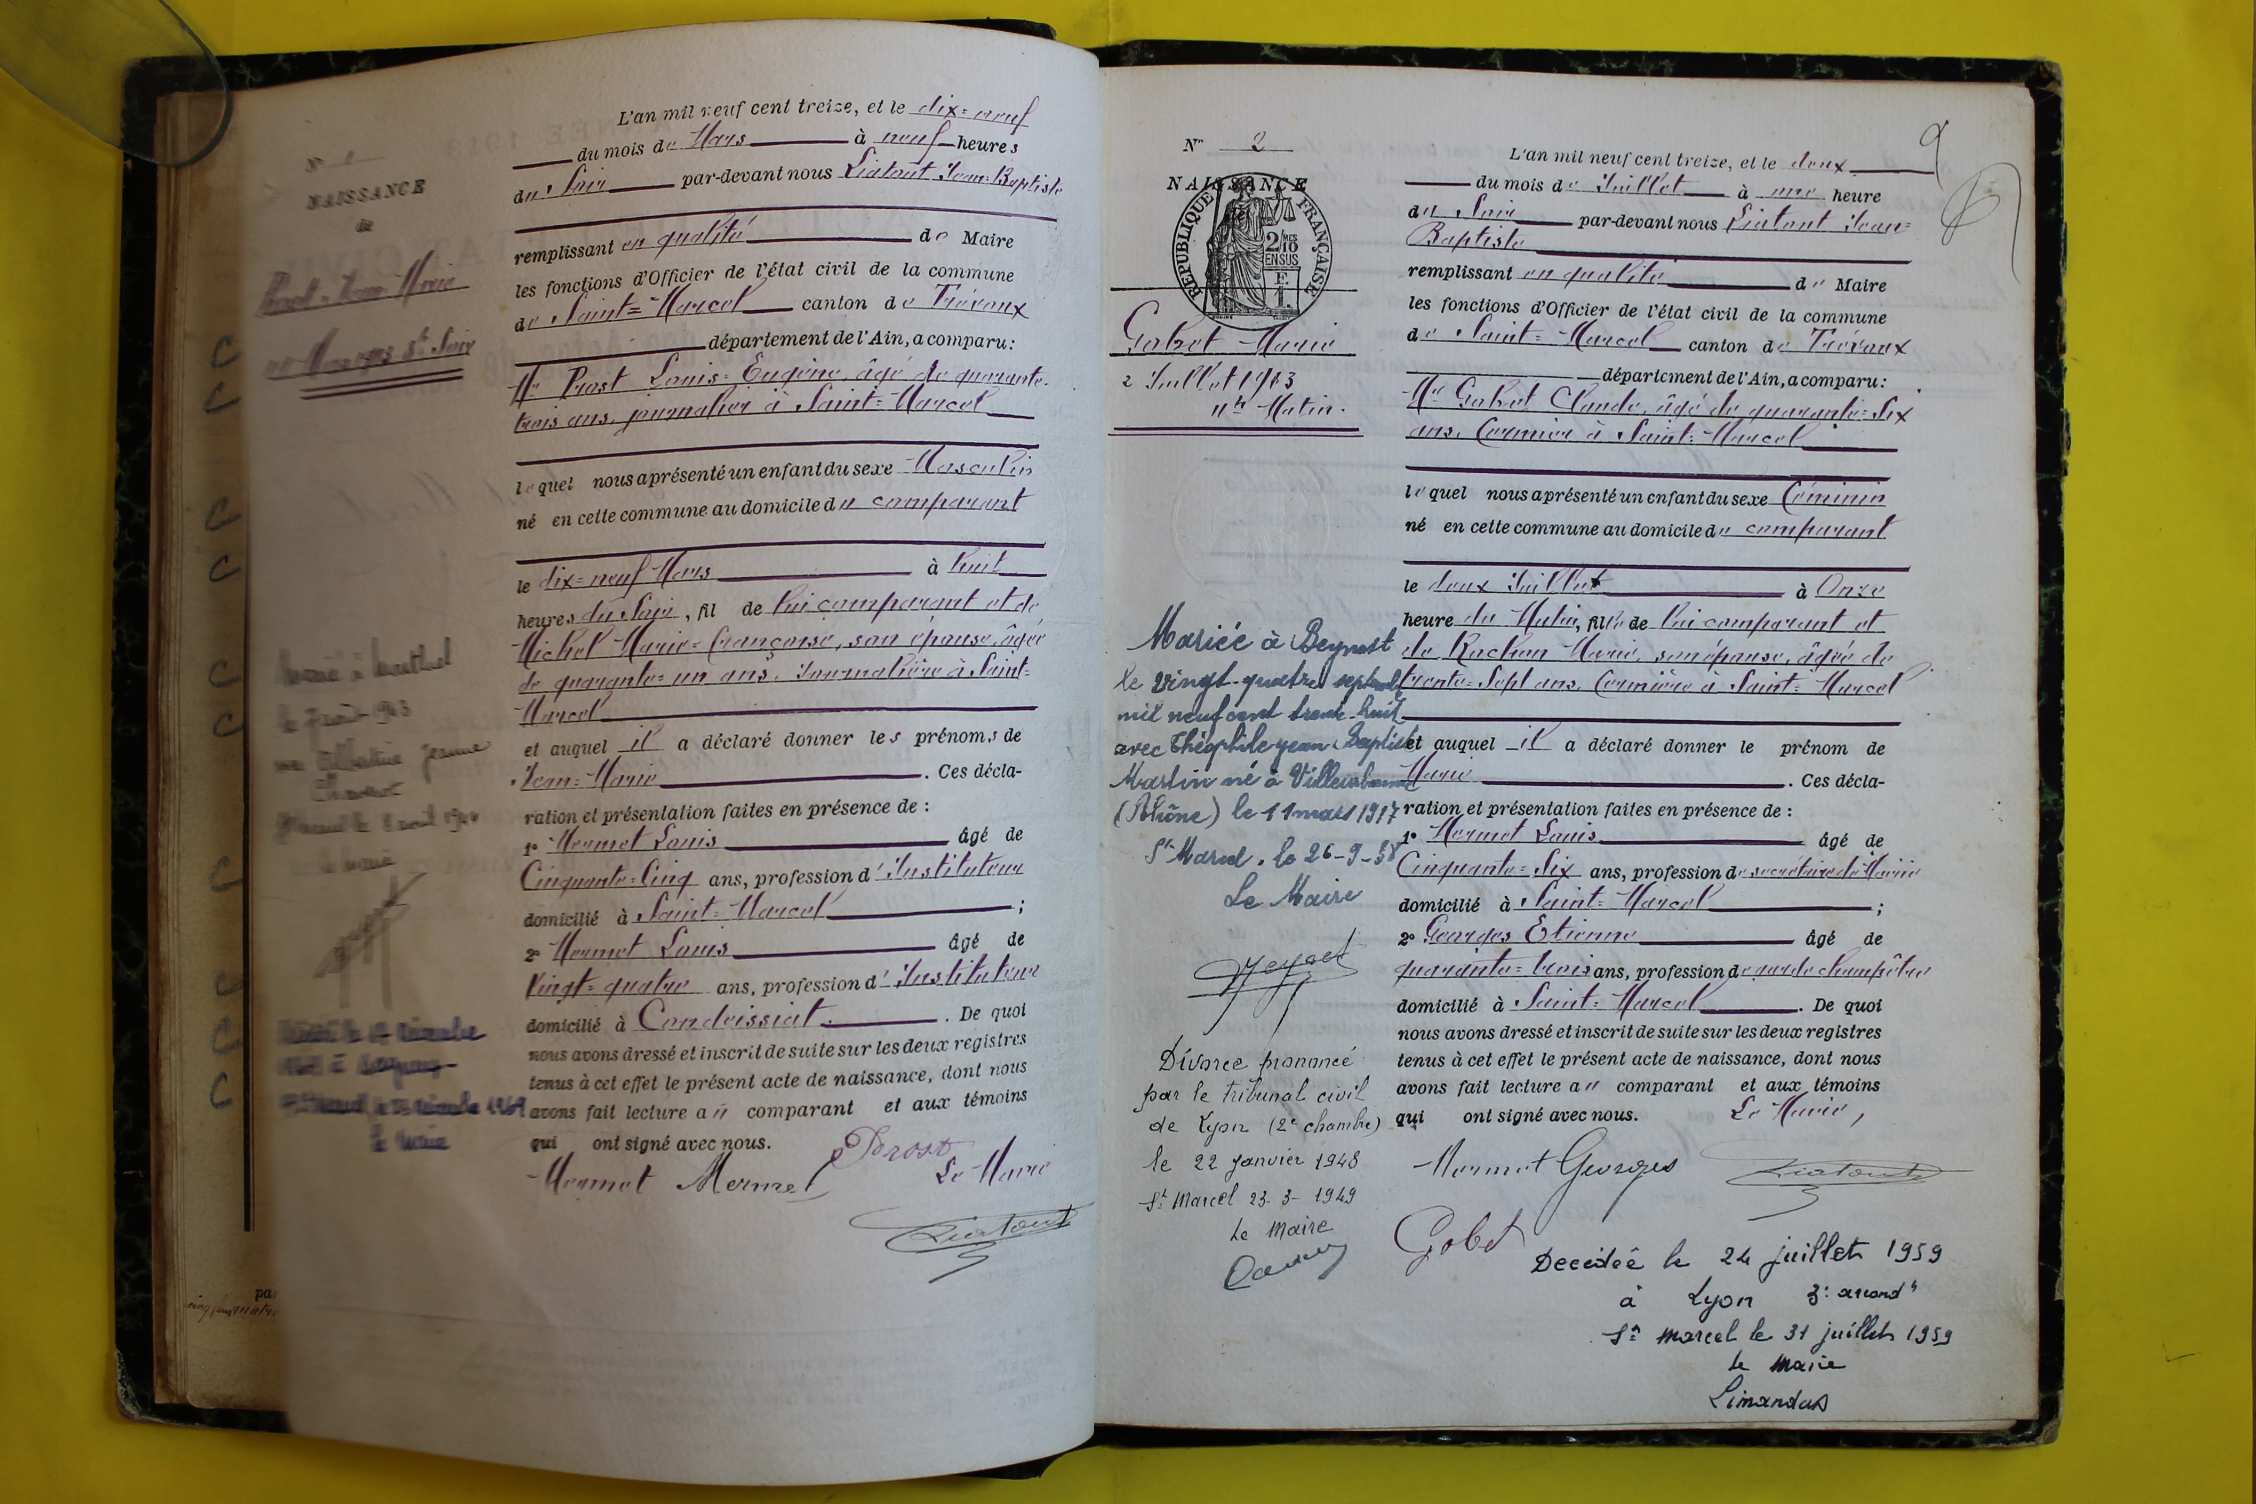 N° 1
NAISSANCE
de
Prost Jean-Marie
19 Mars 1913 8h Soir
Marié à
le 7 août 1943
avec Albertine Jeanne
le Maire
Décédé le 17 décembre
le décembre 1969
le Maire
L'an mil neuf cent treize, et le dix=neuf
du mois de Mars à neuf heures
du Soir par-devant nous Liatout Jean=Baptiste
remplissant en qualité de Maire
les fonctions d'Officier de l'état civil de la commune
de Saint=Marcel canton de Trévoux
département de l'Ain, a comparu:
Mr Prost Louis=Eugène, âgé de quarante-
trois ans, journalier à Saint=Marcel
lequel nous a présenté un enfant du sexe Masculin
né en cette commune au domicile du comparant
le dix=neuf Mars à huit
heures du Soir, fil de lui comparant et de
Michel Marie=Françoise, son épouse, âgée
de quarante=un ans, Journalière à Saint=
Marcel
et auquel il a déclaré donner les prénoms de
Jean=Marie. Ces décla-
ration et présentation faites en présence de :
1° Mermet Louis âgé de
Cinquante=Cinq ans, profession d'Instituteur
domicilié à Saint=Marcel ;
2° Mermet Louis âgé de
Vingt=quatre ans, profession d'Instituteur
domicilié à Condeissiat. De quoi
nous avons dressé et inscrit de suite sur les deux registres
tenus à cet effet le présent acte de naissance, dont nous
avons fait lecture au comparant et aux témoins
qui ont signé avec nous. Prost
Mermet Mermet Le Maire
Liatout
N° 2
NAISSANCE
RÉPUBLIQUE FRANÇAISE
2/10MES
EN SUS
F.
1.
Gobet Marie
2 Juillet 1913
11h Matin.
Mariée à Beynost
le vingt-quatre septembre
mil neuf cent trente-huit
avec Théophile Jean Baptiste
Martin né à Villeurbanne
(Rhône) le 11 mars 1917
St Marcel, le 26-9-38
Le Maire
Divorce prononcé
par le tribunal civil
de Lyon (2e chambre)
le 22 janvier 1948
St Marcel 23-3-1949
Le Maire
9
L'an mil neuf cent treize, et le deux
du mois de Juillet à une heure
du Soir par-devant nous Liatout Jean=
Baptiste
remplissant en qualité de Maire
les fonctions d'Officier de l'état civil de la commune
de Saint=Marcel canton de Trévoux
département de l'Ain, a comparu:
Mr Gobet Claude, âgé de quarante=Six
ans, Fermier à Saint=Marcel
lequel nous a présenté un enfant du sexe Féminin
né en cette commune au domicile du comparant
le deux Juillet à Onze
heure du Matin, fille de lui comparant et
de Rachon Marie, son épouse, âgée de
trente=Sept ans, Fermière à Saint=Marcel
et auquel il a déclaré donner le prénom de
Marie. Ces décla-
ration et présentation faites en présence de :
1° Mermet Louis âgé de
Cinquante=Six ans, profession de secrétaire de Mairie
domicilié à Saint=Marcel ;
2° Georges Etienne âgé de
quarante=trois ans, profession de garde champêtre
domicilié à Saint=Marcel. De quoi
nous avons dressé et inscrit de suite sur les deux registres
tenus à cet effet le présent acte de naissance, dont nous
avons fait lecture au comparant et aux témoins
qui ont signé avec nous. Le Maire,
Mermet Georges Liatout
Gobet
Décédée le 24 juillet 1959
à Lyon 3e arrondt
St Marcel le 31 juillet 1959
le Maire
Limandas